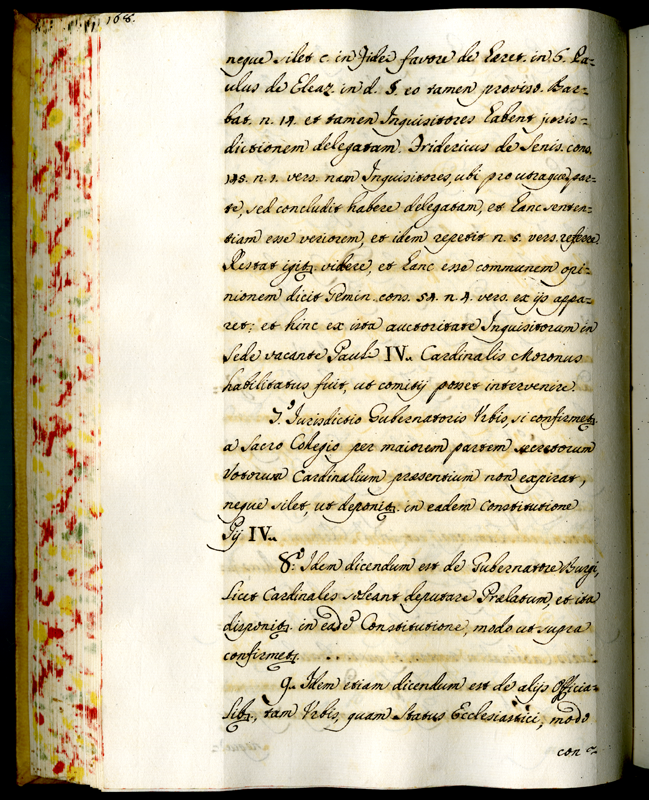 168.
neque silet c. in fidei favore de Heret. in 6. Pa-
ulus de Eleaz. in d. §. eo tamen proviso. Bar-
bat. n. 14. et tamen Inquisitores habent juris-
dictionem delegatam. Fridericus de Senis. cons.
n. 1. vers. nam Inquisitores, ubi pro utraque par-
te, sed concludit habere delegatam, et hanc senten-
tiam esse veriorem, et idem repetit n. 5. vers. referre
Restat igitr. videre, et hanc esse communem opi-
nionem dicit Gemin. cons. 54. n. 4. vers. ex ijs appa-
ret; et hinc ex ista auctoritate Inquisitorum in
Sede vacante Pauli IV. Cardinalis Moronus
habilitatus fuit, ut comitij posset intervenire.
7.° Jurisdictio Gubernatoris Urbis, si confirmetr.
a Sacro Collegio per maiorem partem secretorum
Votorum Cardinalium praesentium non expirat,
neque silet, ut disponitr. in eadem Constitutione
Pij IV.
8.° Idem dicendum est de Gubernatore Burgi,
licet Cardinalis soleant deputare Praelatum, et ita
disponitr. in eade Constitutione, modo ut supra
confirmetr. . . .
9. Idem etiam dicendum est de alijs Officia-
libr., tam Urbis, quam Status Ecclesiastici, modo
con